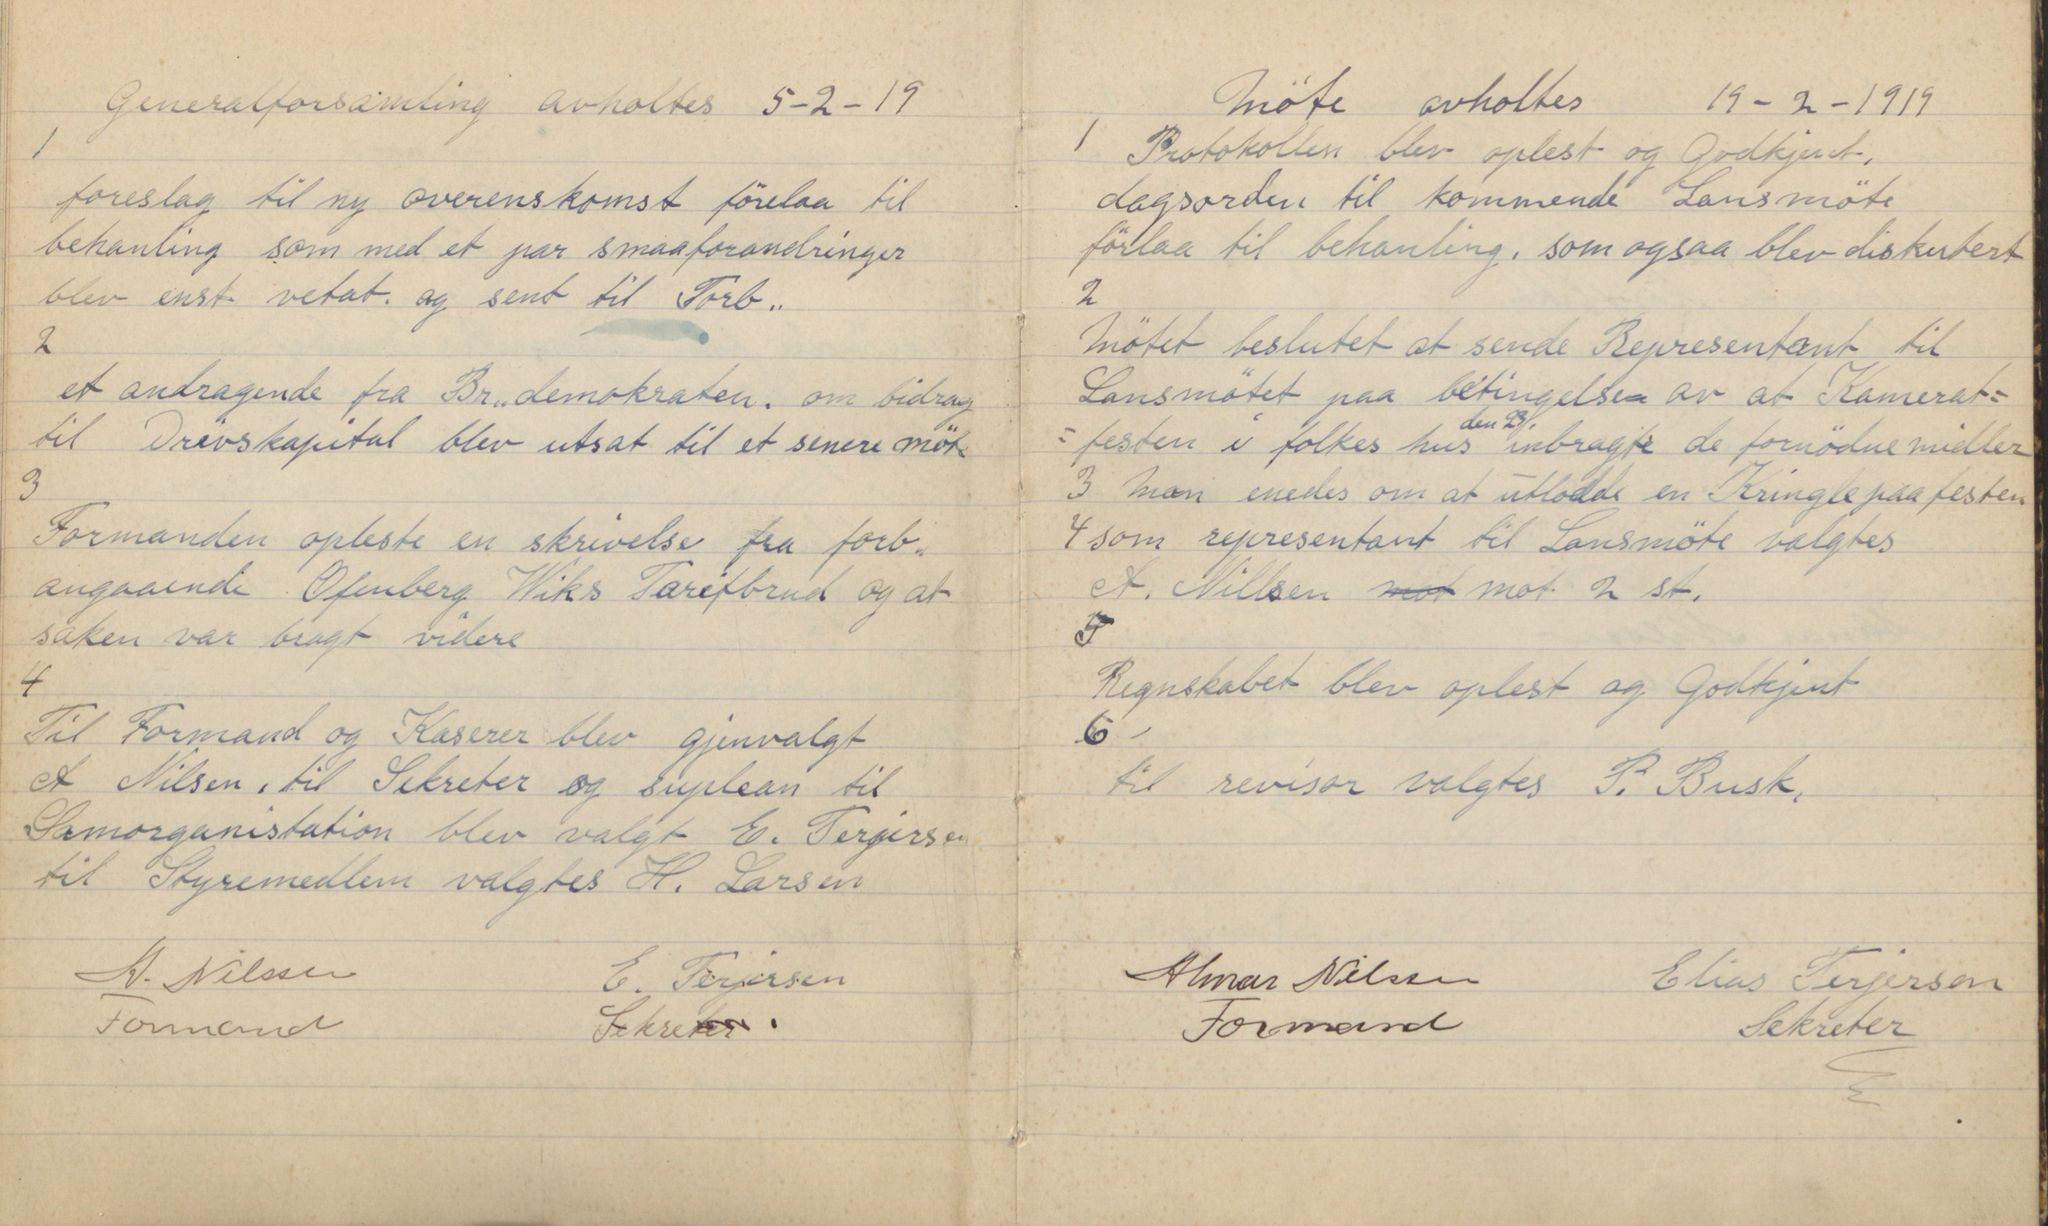 Generalforsamling avholtes 5-2-19
1
foreslag til ny overenskomst förelaa til
behanling som med et par smaaforandringer
blev enst. vetat. og sent til Forb..
2
et andragende fra Br.. demokraten. om bidrag
til Drevskapital blev utsat til et senere möte
3
Formanden opleste en skrivelse fra forb..
angaaende Ofenberg Wiks Tarifbrud og at
saken var bragt videre
4
Til Formand og Kaserer blev gjenvalgt
A Nilsen. til Sekreter og suplean til
Samorganistation blev valgt E. Terjersen
til Styremedlem valgtes H. Larsen
A. Nilssen E. Terjersen
Formand Sekreter.
Möte avholtes 19-2-1919
1
Protokollen blev oplest og Godkjent.
dagsorden til kommende Lansmöte
förlaa til behanling. som ogsaa blev diskutert
2
Mötet beslutet at sende Representant til
Lansmötet paa betingelse av at Kamerat=
=festen i folkes hus den 23/. inbragte de fornödne midler
3 Man enedes om at utlodde en Kringle paa festen
4 som representant til Lansmöte valgtes
A. Nillsen mot mot 2 st.
5
Regnskabet blev oplest og Godkjent
6
til revisor valgtes P. Busk.
Almar Nilssen Elias Terjersen
Formand Sekreter